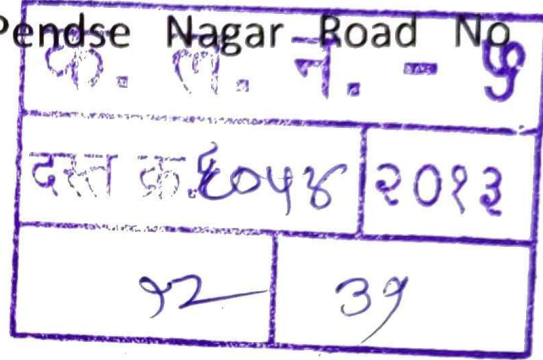 Pendse Nagar Road No
क. ल. न. - ५
दस्त क्र. ६०५४ २०१३
१२ ३१